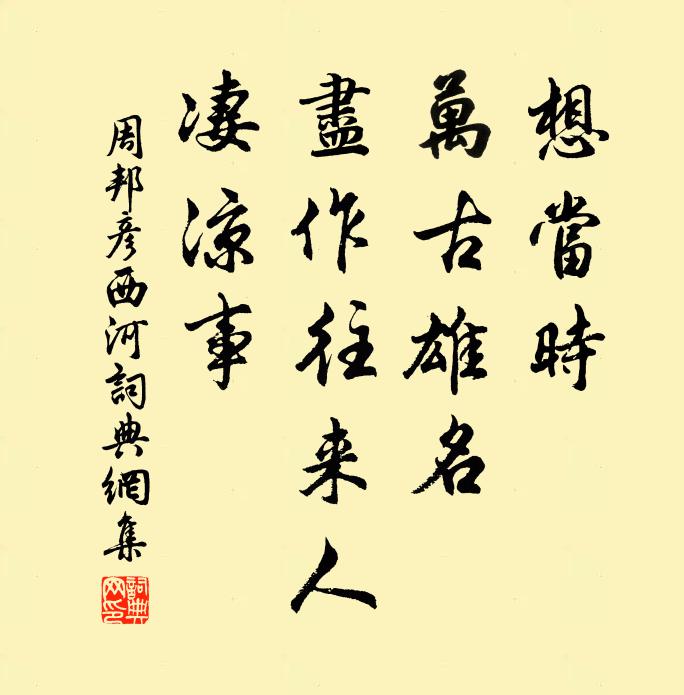 想當時
萬古雄名
盡作往来人
凄凉事
周邦彦西河詞典網集
詞典
网印